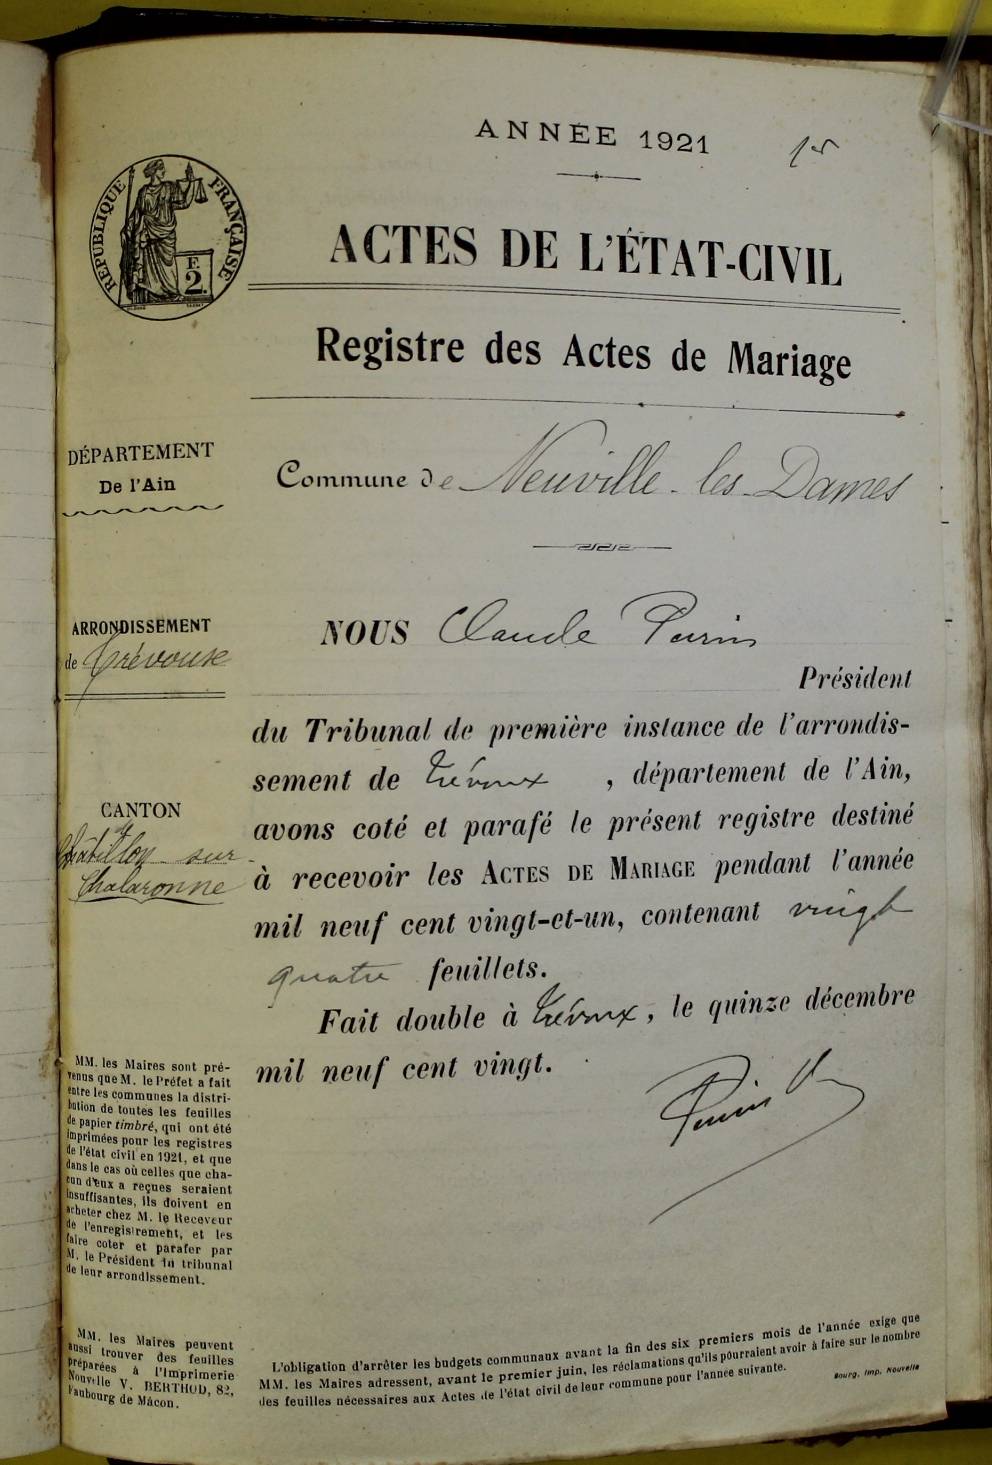 ANNÉE 1921
1er
RÉPUBLIQUE FRANÇAISE
F.
2.
ACTES DE L'ÉTAT-CIVIL
Registre des Actes de Mariage
DÉPARTEMENT
De l'Ain
Commune de Neuville-les-Dames
ARRONDISSEMENT
de Trévoux
CANTON
Châtillon sur
Chalaronne
NOUS Claude Perrin
Président
du Tribunal de première instance de l'arrondis-
sement de Trévoux, département de l'Ain,
avons coté et parafé le présent registre destiné
à recevoir les ACTES DE MARIAGE pendant l'année
mil neuf cent vingt-et-un, contenant vingt
quatre feuillets.
Fait double à Trévoux, le quinze décembre
mil neuf cent vingt.
MM. les Maires sont pré-
venus que M. le Préfet a fait
entre les communes la distri-
bution de toutes les feuilles
de papier timbré, qui ont été
imprimées pour les registres
de l'état civil en 1921, et que
dans le cas où celles que cha-
cun d'eux a reçues seraient
insuffisantes, ils doivent en
acheter chez M. le Receveur
de l'enregistrement, et les
faire coter et parafer par
M. le Président du tribunal
de leur arrondissement.
MM. les Maires peuvent
aussi trouver des feuilles
préparées à l'Imprimerie
Nouvelle V. BERTHOD, 82,
Faubourg de Mâcon.
L'obligation d'arrêter les budgets communaux avant la fin des six premiers mois de l'année exige que
MM. les Maires adressent, avant le premier juin, les réclamations qu'ils pourraient avoir à faire sur le nombre
des feuilles nécessaires aux Actes de l'état civil de leur commune pour l'année suivante.
Bourg, Imp. Nouvelle